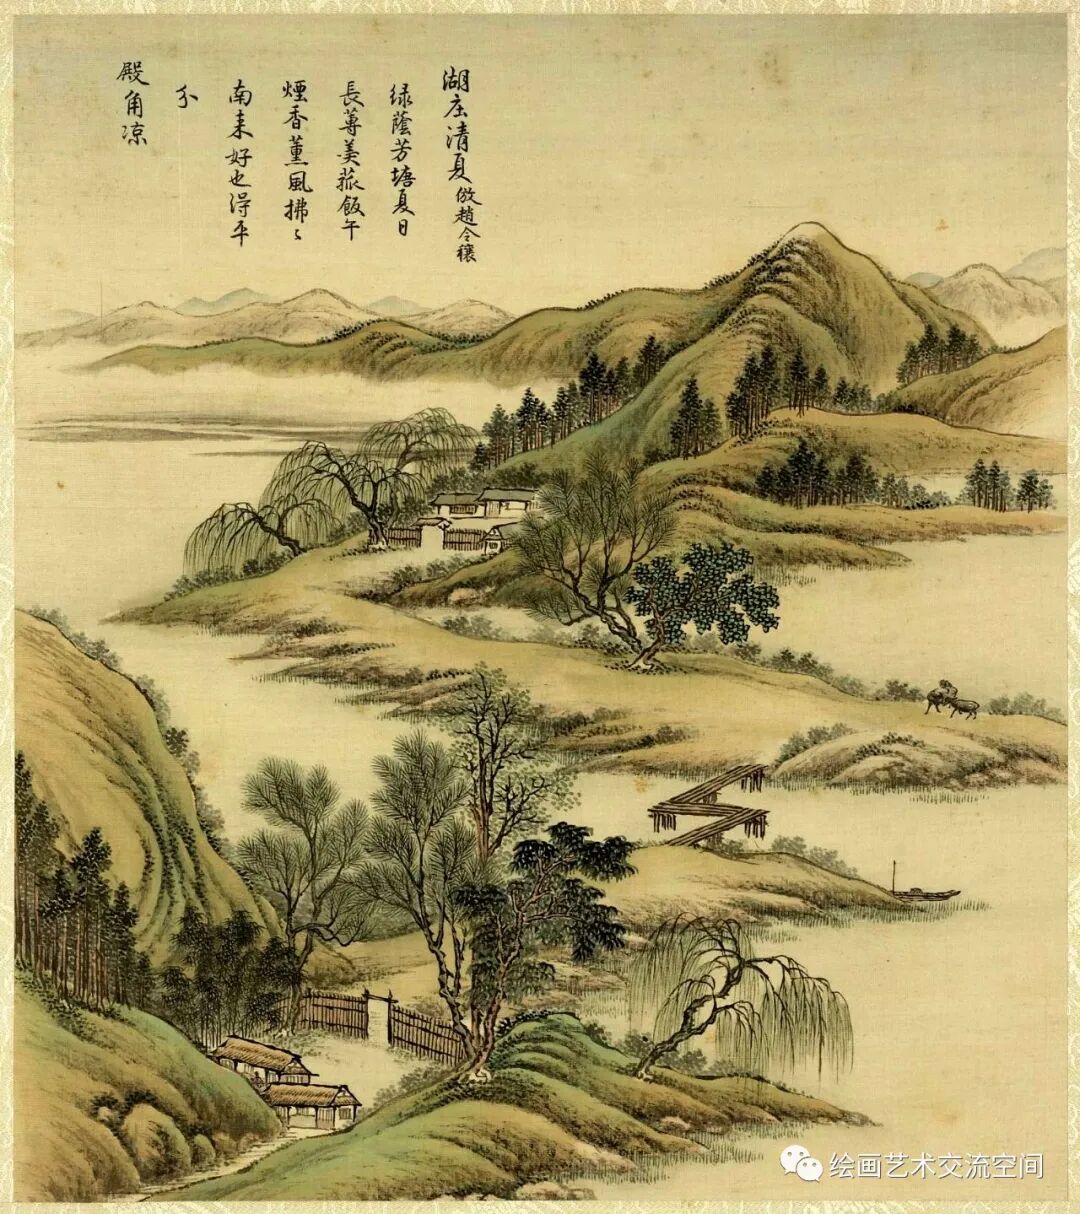 湖庄清夏 倣趙令穰
绿蔭芳塘夏日
長蓴美菰飯午
煙香薰風拂〻
南来好也得平
分
殿角凉
绘画艺术交流空间